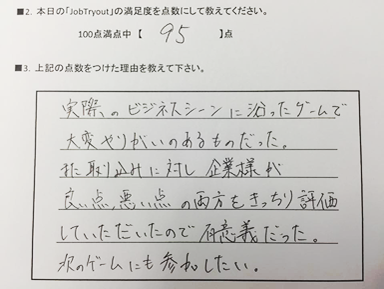 ■2. 本日の「JobTryout」の満足度を点数にして教えてください。
100点満点中【 95 】点
■3. 上記の点数をつけた理由を教えて下さい。
実際のビジネスシーンに沿ったゲームで
大変やりがいのあるものだった。
また取り込みに対し企業様が
良い点、悪い点の両方をきっちり評価
していただいたので有意義だった。
次のゲームにも参加したい。